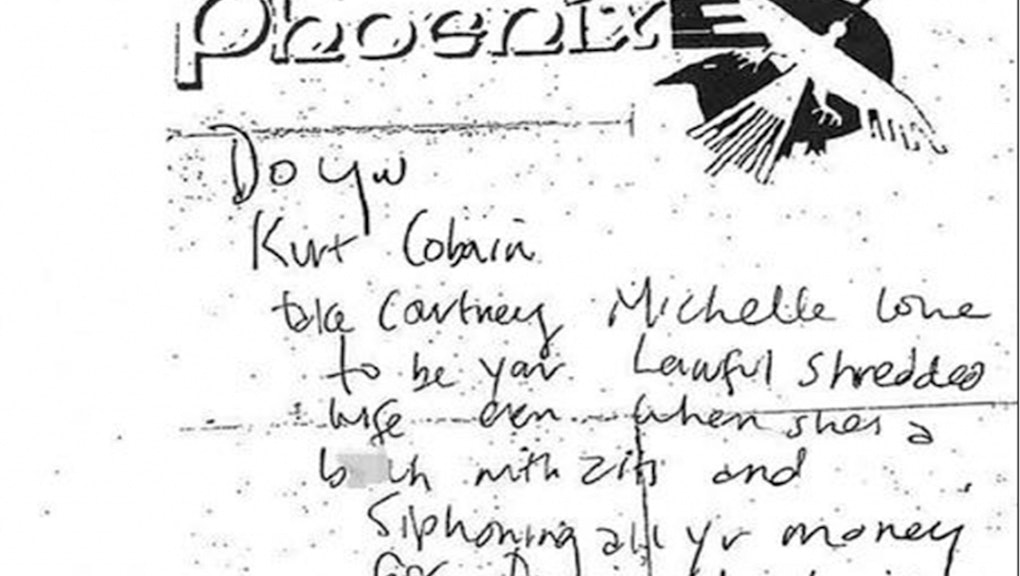 Phoenix
Do you
Kurt Cobain
take Courtney Michelle Love
to be your Lawful shredded
wife even when shes a
b ch with zits and
Siphoning all yr money